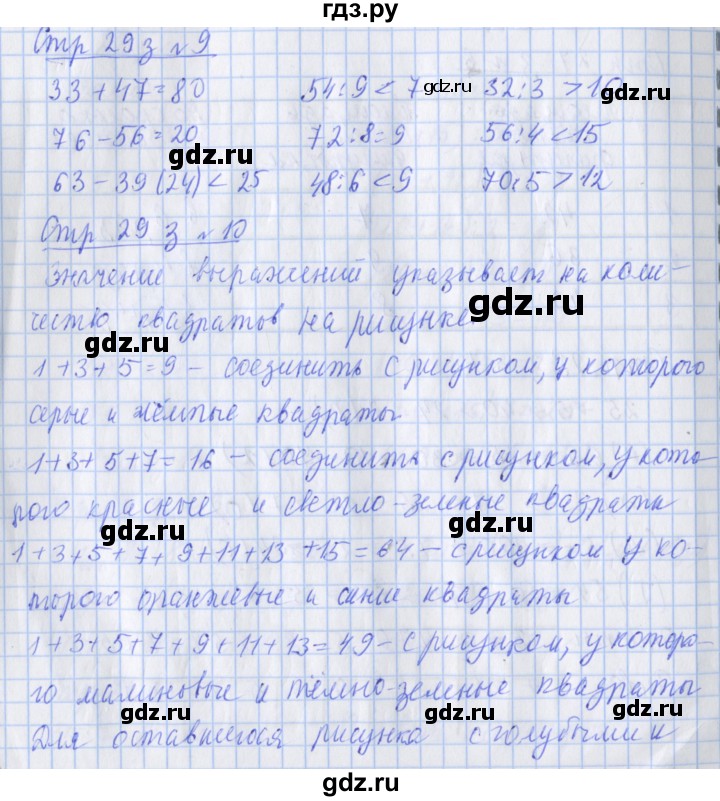 гдз.ру
Стр 29 з №9
33+47=80 54:9<7 32:3>16
gdz.ru
76-56=20 72:8=9 56:4<15
gdz.ru
63-39(24)<25 48:6<9 70:5>12
Стр 29 з №10
gdz.ru
Значение выражений указывает на коли-
чество квадратов на рисунке.
gdz.ru
gdz.ru
1+3+5=9 - соединить с рисунком, у которого
серые и жёлтые квадраты
gdz.ru
1+3+5+7=16 - соединить с рисунком, у кото-
рого красные и светло-зеленые квадраты
gdz.ru
gdz.ru
1+3+5+7+9+11+13+15=64 - с рисунком у ко-
торого оранжевые и синие квадраты
gdz.ru
1+3+5+7+9+11+13=49 - с рисунком, у которо-
го малиновые и тёмно-зеленые квадраты
gdz.ru
gdz.ru
Для оставшегося рисунка с голубыми и
gdz.ru